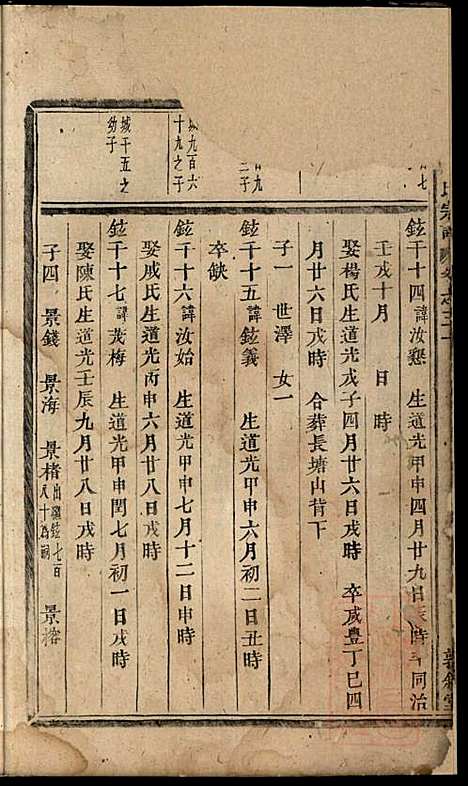 鉉千十四諱汝懇 生道光甲申四月廿九日辰時卒同治
壬戌十月 日 時
娶楊氏生道光戊子四月廿六日戌時 卒咸豐丁巳四
月廿六日戌時 合葬長塘山背下
子一 世澤 女一
廿九
二子
鉉千十五諱鉉義 生道光甲申六月初二日丑時
卒缺
九百六
十九之子
鉉千十六諱汝始 生道光甲申七月十二日申時
娶戚氏生道光丙申六月廿八日戌時
城千五之
幼子
鉉千十七諱茂梅 生道光甲申閏七月初一日戌時
娶陳氏生道光壬辰九月廿八日戌時
子四 景錢 景海 景楮出繼鉉七百八十爲嗣 景榕